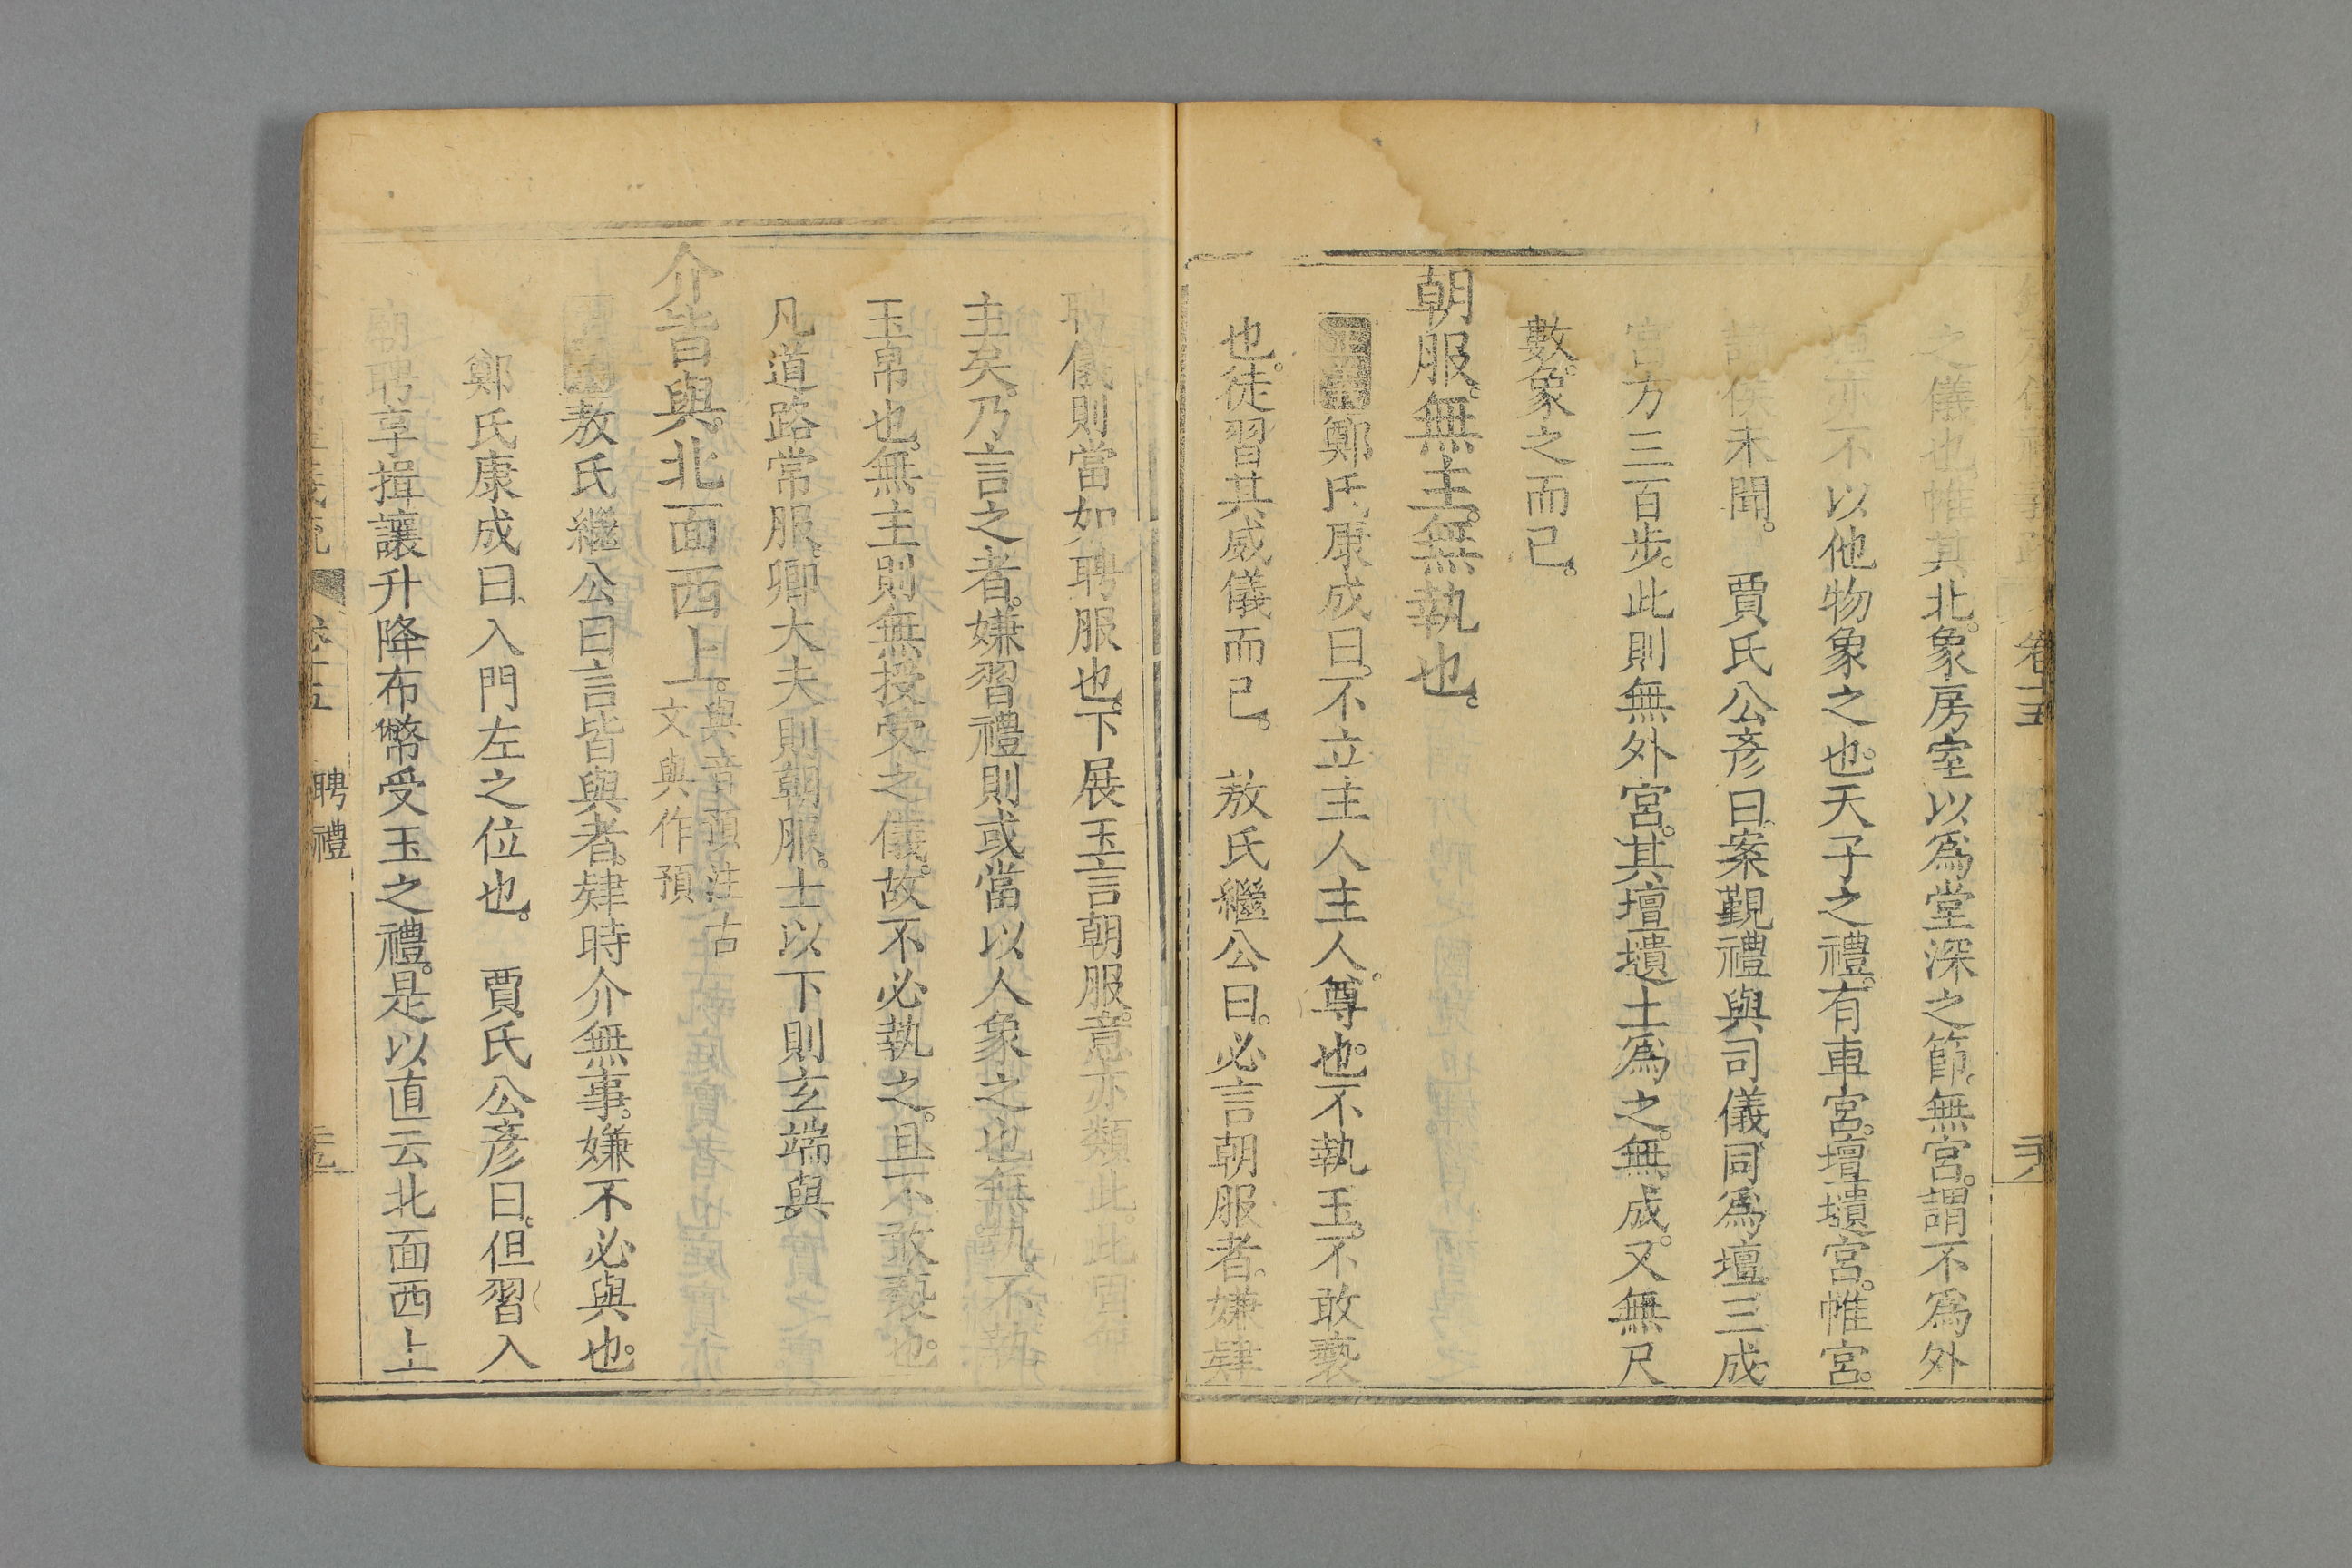 卷十五
儀也帷其北象房室以爲堂深之節無宮謂不爲外
亦不以他物象之也天子之禮有車宮壇壝宮帷宮
諸侯未聞 賈氏公彥曰案覲禮與司儀同爲壇三成
宮方三百步此則無外宮其壇壝土爲之無成又無尺
數象之而已
朝服無主無執也
鄭氏康成曰不立主人主人尊也不執玉不敢褻
也徒習其威儀而已 敖氏繼公曰必言朝服者嫌肄
聘儀則當如聘服也下展玉言朝服意亦類此此固無
主矣乃言之者嫌習禮則或當以人象之也無執不執
玉帛也無主則無授受之儀故不必執之且不敢褻也
凡道路常服卿大夫則朝服士以下則玄端與
介皆與北面西上與音預注古
文與作預
敖氏繼公曰言皆與者肄時介無事嫌不必與也
鄭氏康成曰入門左之位也 賈氏公彥曰但習入
朝聘享揖讓升降布幣受玉之禮是以直云北面西上
聘禮